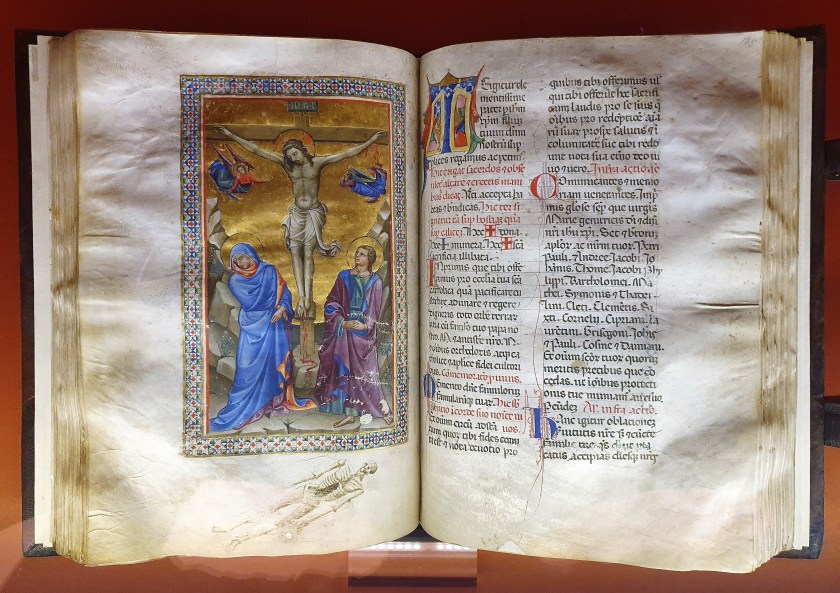 INRI
Te igitur cle
mentissime
pater p ihm
xpm filiu
tuum dnm
nostrum sup
plices rogamus ac petim
Hic erigat sacerdos
bus dicat. Uti accepta ha
beas & bndicas.
hec ✠ dona
hec ✠ munera. hec ✠ scã
sacrificia illibata
Inprimis que tibi offe
rimus pro ecclesia tua scã
catholica quã pacificare cu
stodire adunare & regere
digneris toto orbe terrarum
unã cũ famlo tuo papa no
stro
omnibus orthodoxis atq ca
tholice & aplice fidei cultorib
Comemoratio pro uiuis.
Memento dne famulorum
famularũq tuarũ
quorum tibi fides cogni
ta est & nota deuotio pro
quibus tibi offerimus ul
qui tibi offerũt hoc sacrifi
cium laudis pro se suis q
omibus pro redemptioe aĩa
rũ suarũ pro spe salutis &
incolumitatis sue tibi reddũt
uota sua eterno deo uiu
uo & uero. Infra actioẽ
Communicantes & memo
riam uenerantes. Inpri
mis gloriose semp uirginis
Marie genitricis dei & dni
nri ihu xpi. Set & beatorum
aplorum ac martirum tuorum. Petri
Pauli. Andree Jacobi Jo
hanis. Thome Jacobi Phy
lippi. Bartholomei. Ma
thei. Symonis & Thatei.
Lini. Cleti. Clemẽtis. Si
xti. Cornelii. Cipriani. Lau
rentii. Grisogoni. Johis
& Pauli. Cosme & Damiani.
Et oĩum scõrum tuorum quorum
meritis precibus que con
cedas. ut ĩ oĩbus protecti
onis tue muniamur auxilio
P eũdez Infra actio.
Hanc igitur oblationez
seruitutis nre set & cuncte
familie tue qs dne ut pla
catus accipias diesq nros